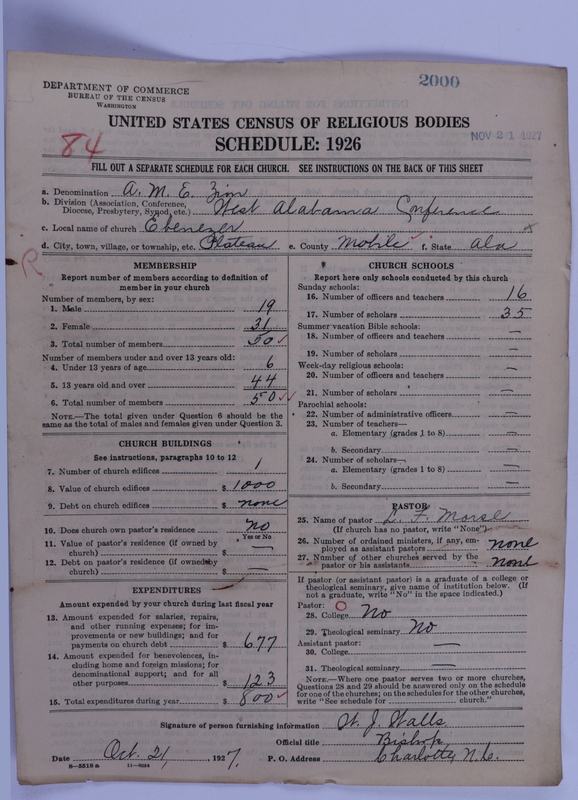 2000
DEPARTMENT OF COMMERCE
BUREAU OF THE CENSUS
WASHINGTON
UNITED STATES CENSUS OF RELIGIOUS BODIES
NOV 21 1927
84
SCHEDULE: 1926
FILL OUT A SEPARATE SCHEDULE FOR EACH CHURCH. SEE INSTRUCTIONS ON THE BACK OF THIS SHEET
a. Denomination A. M. E. Zion
b. Division (Association, Conference, Diocese, Presbytery, Synod, etc.) West Alabama Conference
c. Local name of church Ebenezer
d. City, town, village, or township, etc. Plateau e. County Mobile f. State Ala
R
MEMBERSHIP
Report number of members according to definition of
member in your church
Number of members, by sex:
1. Male 19
2. Female 31
3. Total number of members 50
Number of members under and over 13 years old:
4. Under 13 years of age 6
5. 13 years old and over 44
6. Total number of members 50
NOTE.—The total given under Question 6 should be the
same as the total of males and females given under Question 3.
CHURCH BUILDINGS
See instructions, paragraphs 10 to 12
7. Number of church edifices 1
8. Value of church edifices $ 1000
9. Debt on church edifices $ none
10. Does church own pastor's residence No
Yes or No
11. Value of pastor's residence (if owned by
church) $ —
12. Debt on pastor's residence (if owned by
church) $ —
EXPENDITURES
Amount expended by your church during last fiscal year
13. Amount expended for salaries, repairs,
and other running expenses; for im-
provements or new buildings; and for
payments on church debt $ 677
14. Amount expended for benevolences, in-
cluding home and foreign missions; for
denominational support; and for all
other purposes $ 123
15. Total expenditures during year $ 800
CHURCH SCHOOLS
Report here only schools conducted by this church
Sunday schools:
16. Number of officers and teachers 16
17. Number of scholars 35
Summer vacation Bible schools:
18. Number of officers and teachers —
19. Number of scholars —
Week-day religious schools:
20. Number of officers and teachers —
21. Number of scholars —
Parochial schools:
22. Number of administrative officers —
23. Number of teachers—
a. Elementary (grades 1 to 8) —
b. Secondary —
24. Number of scholars—
a. Elementary (grades 1 to 8) —
b. Secondary —
PASTOR
25. Name of pastor L. F. Morse
(If church has no pastor, write "None")
26. Number of ordained ministers, if any, em-
ployed as assistant pastors none
27. Number of other churches served by the
pastor or his assistants none
If pastor (or assistant pastor) is a graduate of a college or
theological seminary, give name of institution below. (If
not a graduate, write "No" in the space indicated.)
Pastor:
28. College No
29. Theological seminary No
Assistant pastor:
30. College —
31. Theological seminary —
NOTE.—Where one pastor serves two or more churches,
Questions 28 and 29 should be answered only on the schedule
for one of the churches; on the schedules for the other churches,
write "See schedule for church."
Signature of person furnishing information W. J. Walls
Official title Bishop
Date Oct. 21, 1927. P. O. Address Charlotte N. C.
8—5518 a 11—9034